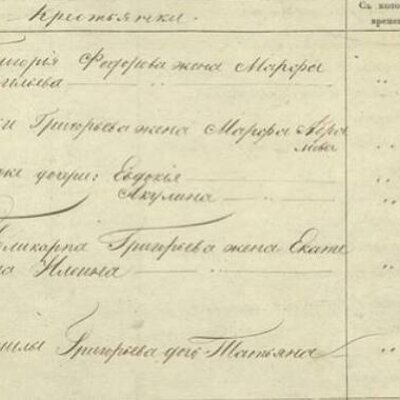 Крестьянки.
Съ кото
времен
игорія Федорова жена Марфа
сильева
и Григорьева жена Марфа Абра
мова
же дочери: Евдокія
Акулина
оликарпа Григорьева жена Екате
на Ильина
илы Григорьева дочь Татьяна